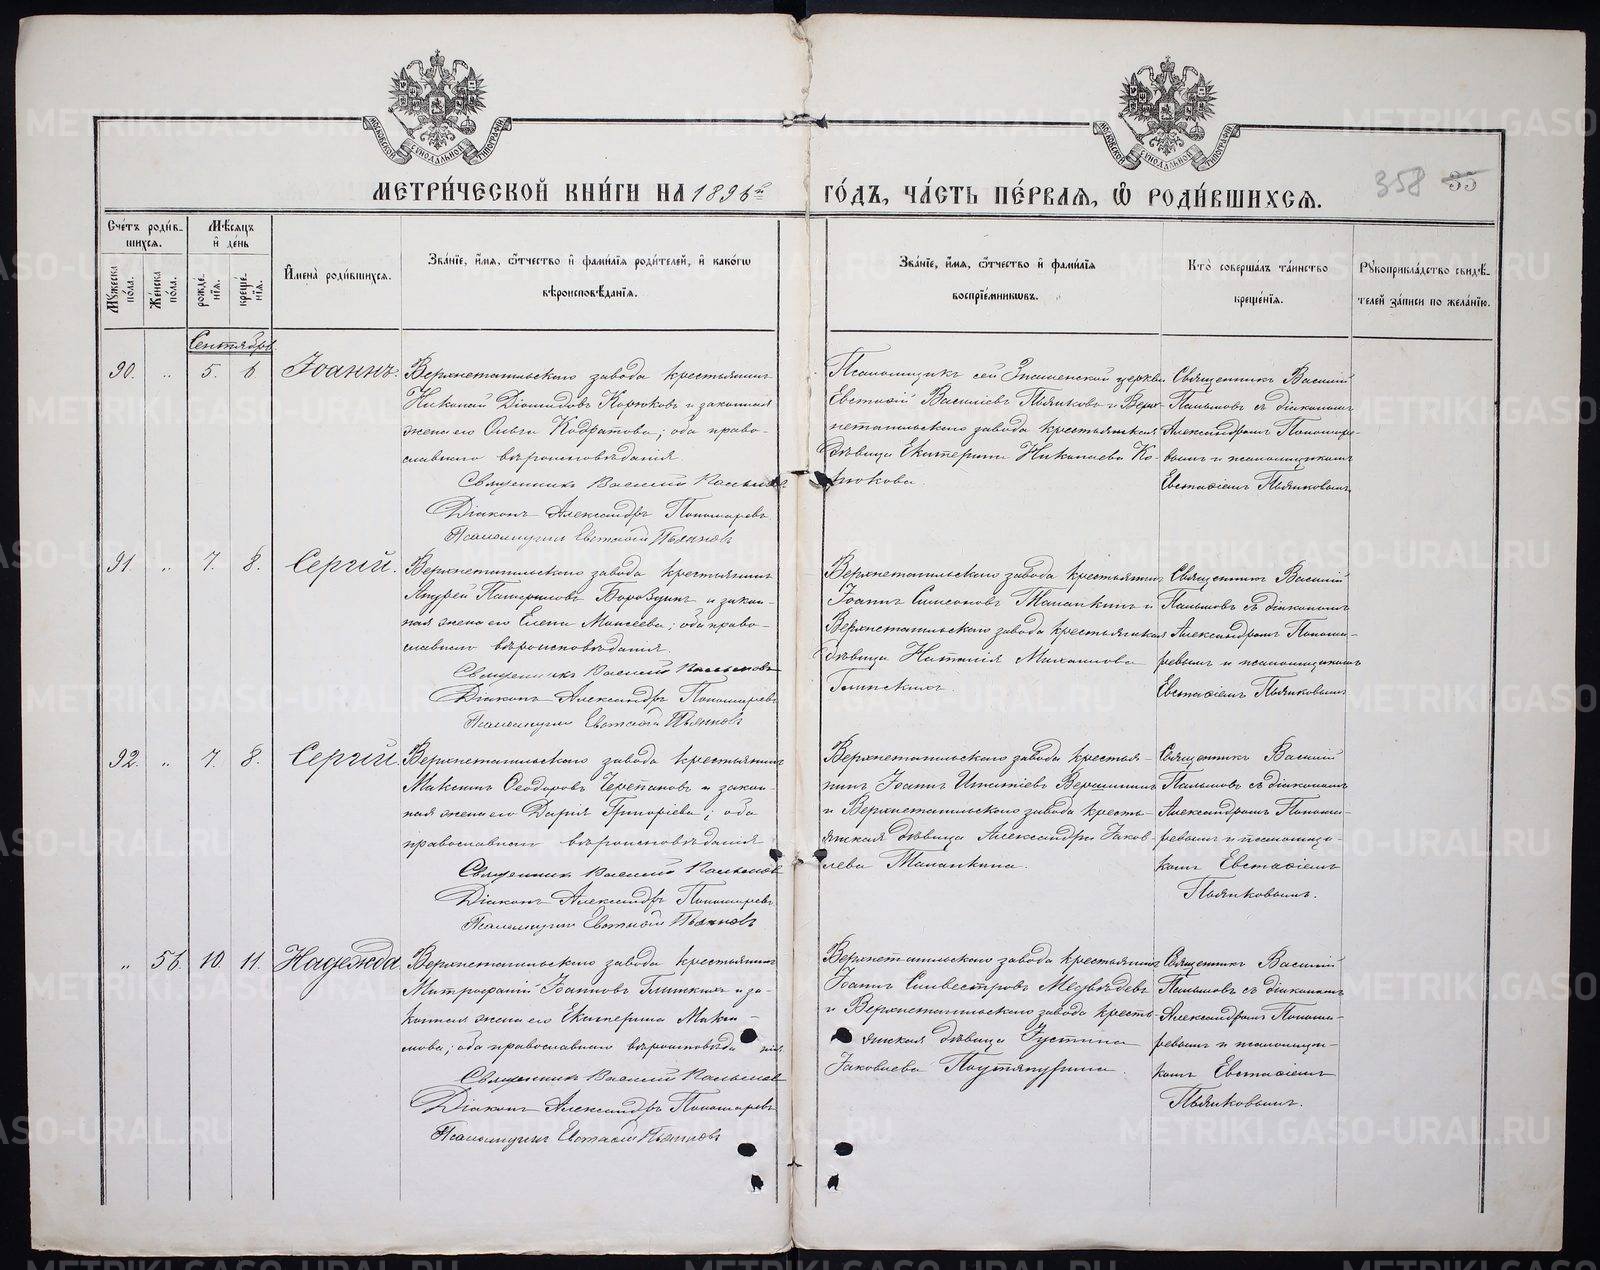 МЕТРИ́ЧЕСКОЙ КНИ́ГИ НА 1896й ГО́ДЪ, ЧА́СТЬ ПЕ́РВАѦ, Ѽ РОДИ́ВШИХСѦ.
358 35
МОСКОВСКОЙ СѴНОДАЛЬНОЙ ТИПОГРАФІИ
МОСКОВСКОЙ СѴНОДАЛЬНОЙ ТИПОГРАФІИ
Сче́тъ роди́в-
шихсѧ.
Мѣ́сѧцъ
и҆ де́нь
Мꙋ́жеска
по́ла.
Же́нска
по́ла.
рожде́-
нїѧ.
креще́-
нїѧ.
И҆мена̀ роди́вшихсѧ.
Зва́нїе, и҆́мѧ, ѻ҆́тчество и҆ фами́лїѧ роди́телей, и҆ како́гѡ
вѣроисповѣ́данїѧ.
Зва́нїе, и҆́мѧ, ѻ҆́тчество и҆ фами́лїѧ
воспрїе́мникѡвъ.
Кто̀ соверша́лъ та́инство
креще́нїѧ.
Рꙋкоприкла́дство свидѣ́-
телей за́писи по жела́нїю.
Сентябрь
90. " 5. 6 Іоаннъ.
Верхнетагильскаго завода крестьянинъ
Николай Діомидовъ Корюковъ и законная
жена его Ольга Кодратова; оба право-
славнаго вѣроисповѣданія.
Священникъ Василій Пальмовъ
Діаконъ Александръ Пономаревъ
Псаломщикъ Евстафій Пьянковъ
Псаломщикъ сей Знаменской церкви
Евстафій Василіевъ Пьянковъ и Верх-
нетагильскаго завода крестьянская
дѣвица Екатерина Николаева Ко-
рюкова
Священникъ Василій
Пальмовъ съ діакономъ
Александромъ Пономаре-
вымъ и псаломщикомъ
Евстафіемъ Пьянковымъ.
91. " 7. 8. Сергій.
Верхнетагильскаго завода крестьянинъ
Андрей Панфиловъ Бороздинъ и закон-
ная жена его Елена Моисеева; оба право-
славнаго вѣроисповѣданія.
Священникъ Василій Пальмовъ
Діаконъ Александръ Пономаревъ
Псаломщикъ Евстафій Пьянковъ
Верхнетагильскаго завода крестьянинъ
Іоаннъ Симеоновъ Маланкинъ и
Верхнетагильскаго завода крестьянская
дѣвица Наталія Михаилова
Глинскихъ.
Священникъ Василій
Пальмовъ съ діакономъ
Александромъ Понома-
ревымъ и псаломщикомъ
Евстафіемъ Пьянковымъ
92. " 7. 8. Сергій
Верхнетагильскаго завода крестьянинъ
Максимъ Ѳеодоровъ Черепановъ и закон-
ная жена его Дарія Григоріева; оба
православнаго вѣроисповѣданія
Священникъ Василій Пальмовъ
Діаконъ Александръ Пономаревъ
Псаломщикъ Евстафій Пьянковъ
Верхнетагильскаго завода крестья-
нинъ Іоаннъ Игнатіевъ Вершининъ
и Верхнетагильскаго завода кресть-
янская дѣвица Александра Іаков-
лева Маланкина.
Священникъ Василій
Пальмовъ съ діакономъ
Александромъ Понома-
ревымъ и псаломщи-
комъ Евстафіемъ
Пьянковымъ.
" 56. 10. 11. Надежда
Верхнетагильскаго завода крестьянинъ
Митрофаній Іоанновъ Глинскихъ и за-
конная жена его Екатерина Макси-
мова; оба православнаго вѣроисповѣданія.
Священникъ Василій Пальмовъ
Діаконъ Александръ Пономаревъ
Псаломщикъ Евстафій Пьянковъ
Верхнетагильскаго завода крестьянинъ
Іоаннъ Сильвестровъ Медвѣдевъ
и Верхнетагильскаго завода кресть-
янская дѣвица Іустина
Іаковлева
Священникъ Василій
Пальмовъ съ діакономъ
Александромъ Понома-
ревымъ и псаломщи-
комъ Евстафіемъ
Пьянковымъ.
METRIKI.GASO-URAL.RU